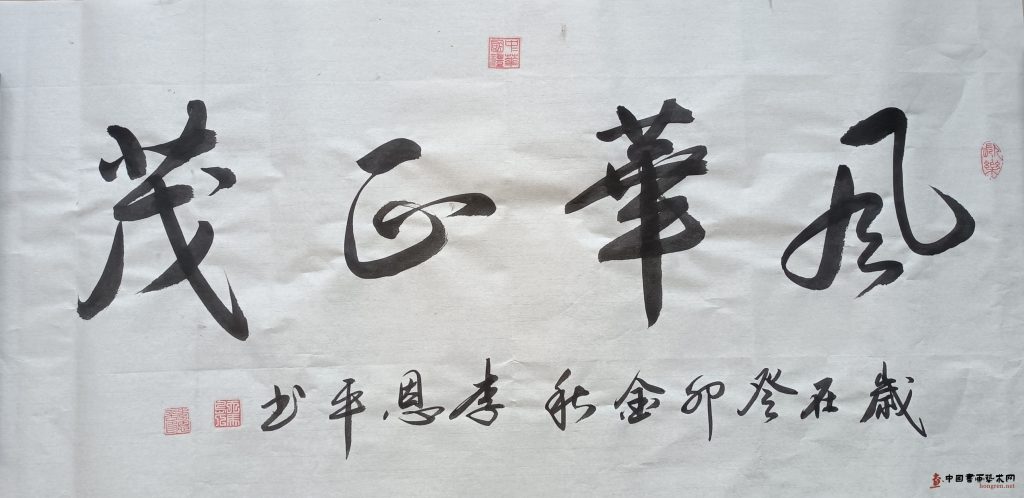 風華正茂
歲在癸卯金秋李恩平书
中華
國禮
中国書画艺术网
hongren.net